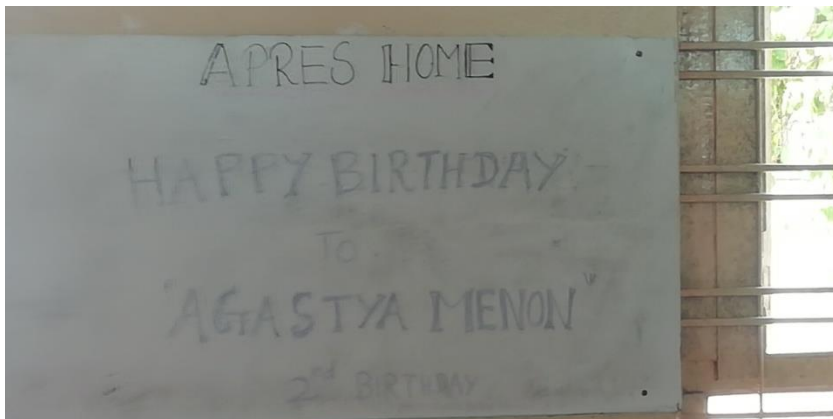 APRES HOME
HAPPY BIRTHDAY
TO
"AGASTYA MENON"
2nd BIRTHDAY